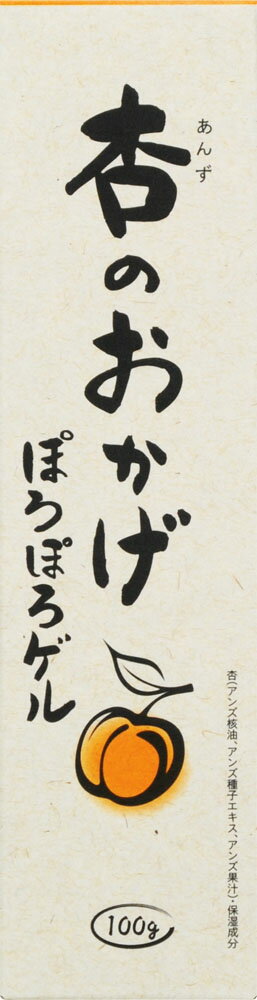 あんず
杏のおかげ
ぽろぽろゲル
杏(アンズ核油、アンズ種子エキス、アンズ果汁)・保湿成分
100g